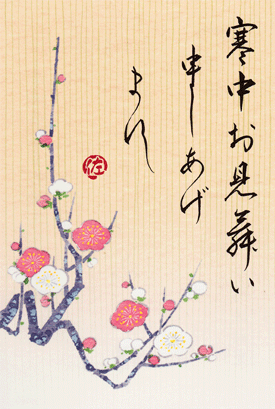 寒中お見舞い
申しあげ
ます
佐